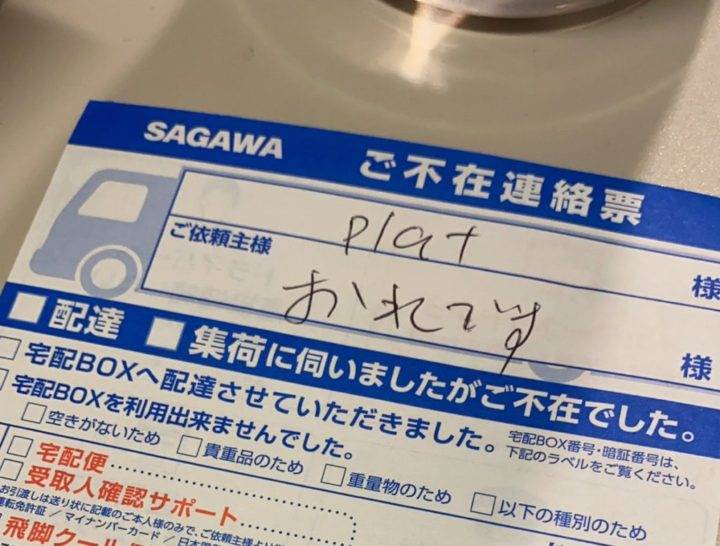 SAGAWA ご不在連絡票
plat 様
ご依頼主様
おれです 様
配達 集荷に伺いましたがご不在でした。
宅配BOXへ配達させていただきました。
宅配BOX番号・暗証番号は、
下記のラベルをご覧ください。
宅配BOXを利用出来ませんでした。
空きがないため 貴重品のため 重量物のため 以下の種別のため
宅配便
受取人確認サポート
お引渡しは送り状に記載のご本人様のみで、ご依頼主様より
運転免許証 / マイナンバーカード / 日本国
飛脚クール